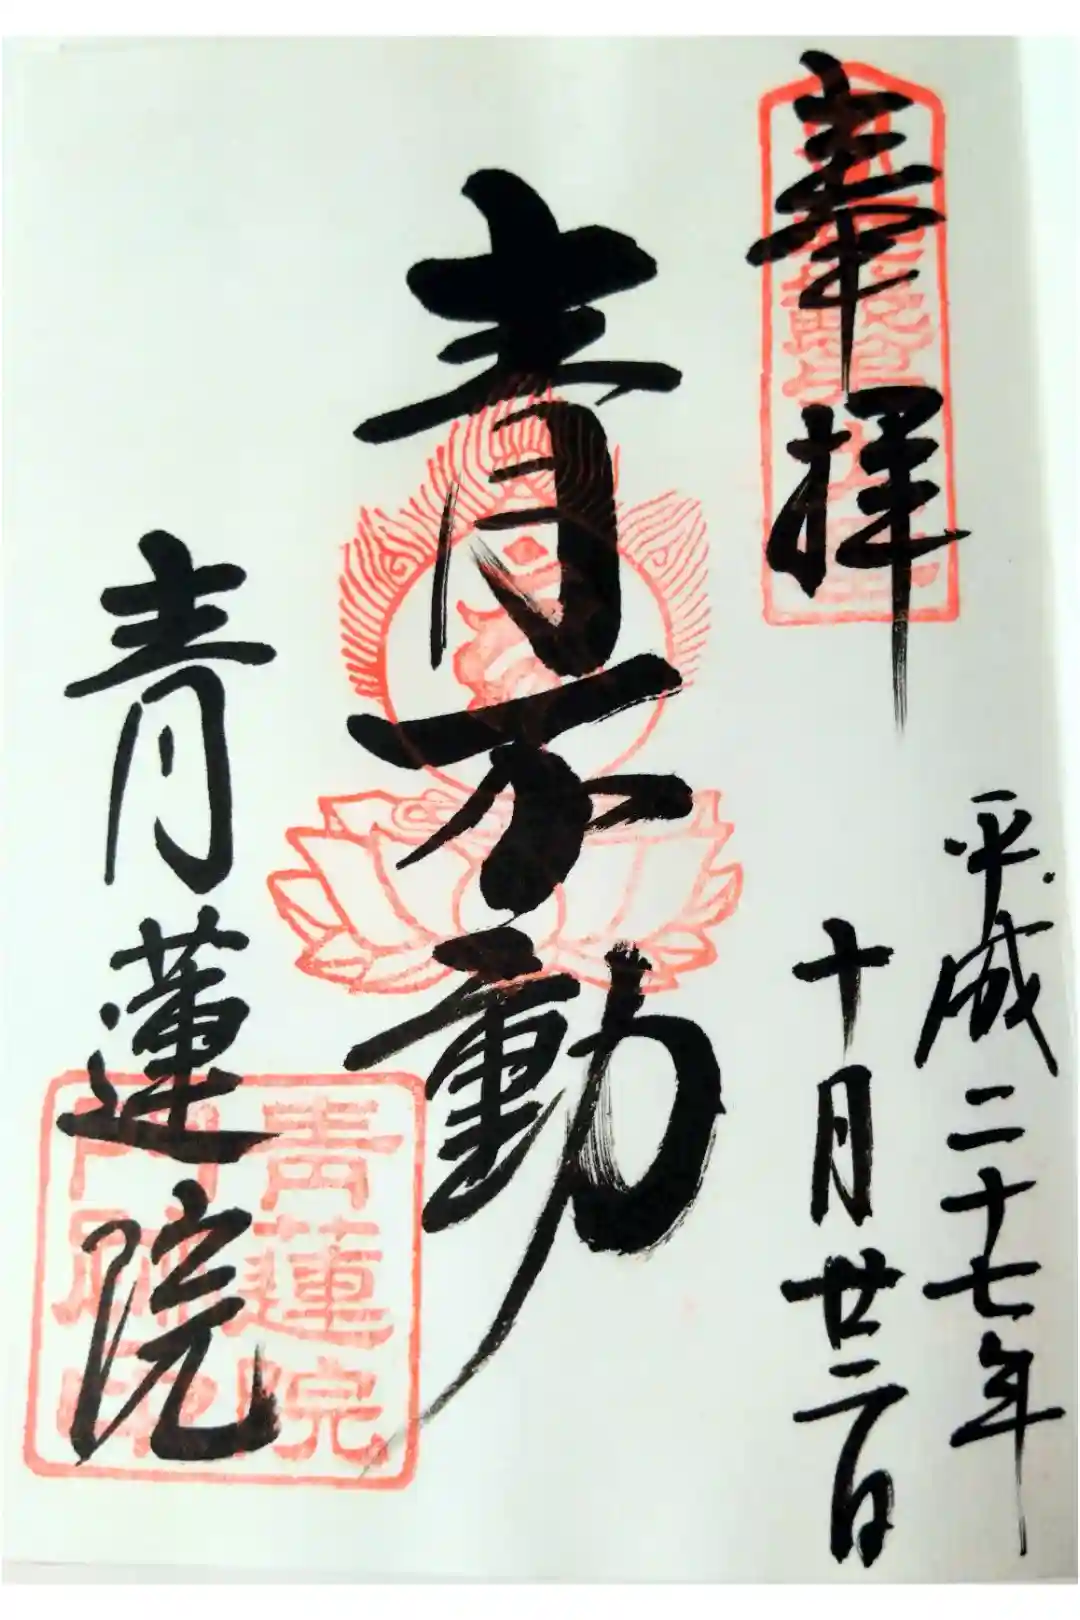 奉拝
平成二十七年
十月廿二日
青不動
青蓮院
青蓮院
門跡印